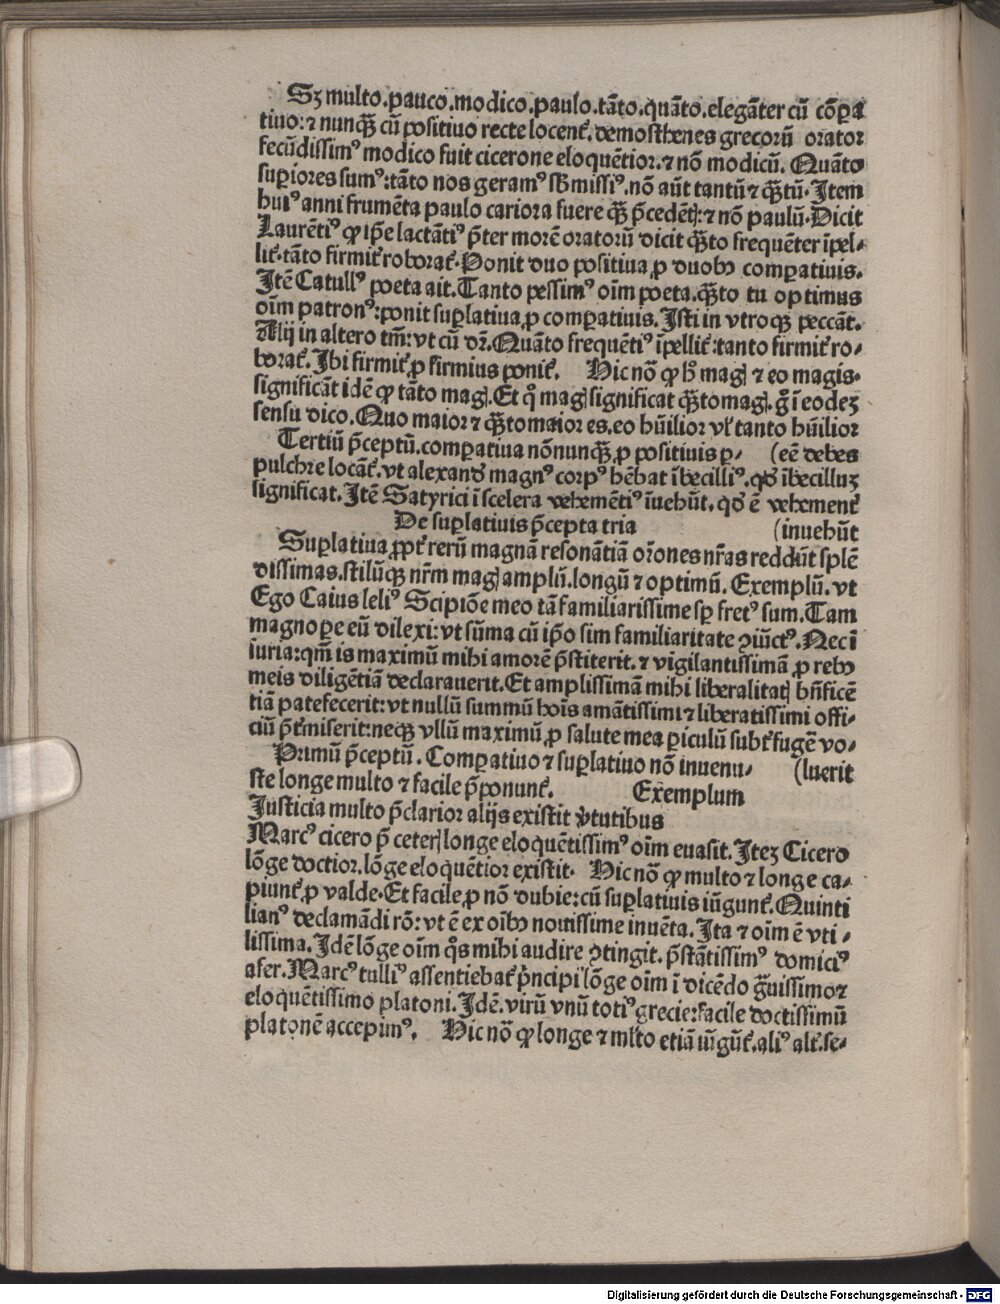 Sꝫ multo.pauco.modico.paulo.tāto.quāto.elegāter cū cōꝑa
tiuo:⁊ nunqꝫ cū positiuo recte locent̄.demosthenes grecorū orator
fecūdissimꝰ modico fuit cicerone eloquētior.⁊ nō modicū. Quāto
suꝑiores sumꝰ:tāto nos geramꝰ sb̄missiꝰ.nō aūt tantū ⁊ qꝫtū. Item
huiꝰ anni frumēta paulo cariora fuere qꝫ p̄cedētꝭ:⁊ nō paulū. Dicit
Laurētiꝰ ꝙ ip̄e lactātiꝰ p̄ter morē oratorū dicit qꝫto frequēter īpel-
lit̄.tāto firmit̄ roborat̄. Ponit duo positiua ꝓ duobꝫ comꝑatiuis.
Itē Catullꝰ poeta ait. Tanto pessimꝰ oīm poeta.qꝫto tu optimus
oīm patronꝰ:ponit suꝑlatiua ꝓ comꝑatiuis. Isti in vtroqꝫ peccāt.
Alij in altero tm̄:vt cū dr̄. Quāto frequētiꝰ īpellit̄:tanto firmit̄ ro-
borat̄. Ibi firmit̄ ꝓ firmius ponit̄. Hic nō ꝙ h̄ magꝭ ⁊ eo magis
significāt idē ꝙ tāto magꝭ. Et q̊ magꝭ significat qꝫto magꝭ. g̊ ī eodeꝫ
sensu dico. Quo maior ⁊ qꝫto maior es.eo hūilior vl̄ tanto hūilior
Tertiū p̄ceptū.comꝑatiua nōnunqꝫ ꝓ positiuis ꝑ- (eē debes
pulchre locāt̄.vt alexanđ magnꝰ corpꝰ hēbat ībecilliꝰ.qđ ībecilluꝫ
significat. Itē Satyrici ī scelera vehemētiꝰ īuehūt.qđ ē vehement̄
De suꝑlatiuis p̄cepta tria (inuehūt
Suꝑlatiua ꝓpt̄ rerū magnā resonātiā or̄ones nr̄as reddūt splē
dissimas.stilūqꝫ nr̄m magꝭ amplū.longū ⁊ optimū. Exemplū. vt
Ego Caius leliꝰ Scipiōe meo tā familiarissime sꝑ fretꝰ sum. Tam
magnoꝑe eū dilexi:vt sūma cū ip̄o sim familiaritate ꝯiūctꝰ. Nec ī
iuria:qm̄ is maximū mihi amorē p̄stiterit.⁊ vigilantissimā ꝓ rebꝫ
meis diligētiā declarauerit. Et amplissimā mihi liberalitatꝭ bn̄ficē
tiā patefecerit:vt nullū summū hoīs amātissimi ⁊ liberatissimi offi-
ciū p̄t̄miserit:neqꝫ vllū maximū ꝓ salute mea ꝑiculū subt̄fugē vo-
Primū p̄ceptū. Comꝑatiuo ⁊ suꝑlatiuo nō inuenu- (luerit
ste longe multo ⁊ facile p̄ponunt̄. Exemplum
Iusticia multo p̄clarior alijs existit v̄tutibus
Marcꝰ cicero p̄ ceterꝭ longe eloquētissimꝰ oīm euasit. Iteꝫ Cicero
lōge doctior.lōge eloquētior existit. Hic nō ꝙ multo ⁊ longe ca-
piunt̄ ꝓ valde. Et facile ꝓ nō dubie:cū suꝑlatiuis iūgunt̄. Quinti
lianꝰ declamādi rō:vt ē ex oībꝫ nouissime inuēta. Ita ⁊ oīm ē vti-
lissima. Idē lōge oīm q̊s mihi audire ꝯtingit. p̄stātissimꝰ domiciꝰ
afer. Marcꝰ tulliꝰ assentiebat̄ p̄ncipi lōge oīm ī dicēdo g̊uissimo ⁊
eloquētissimo platoni. Idē. virū vnū totiꝰ grecie:facile doctissimū
platonē accepimꝰ. Hic nō ꝙ longe ⁊ ml̄to etiā iūgūt̄.aliꝰ alt̄.se-
Digitalisierung gefördert durch die Deutsche Forschungsgemeinschaft - DFG